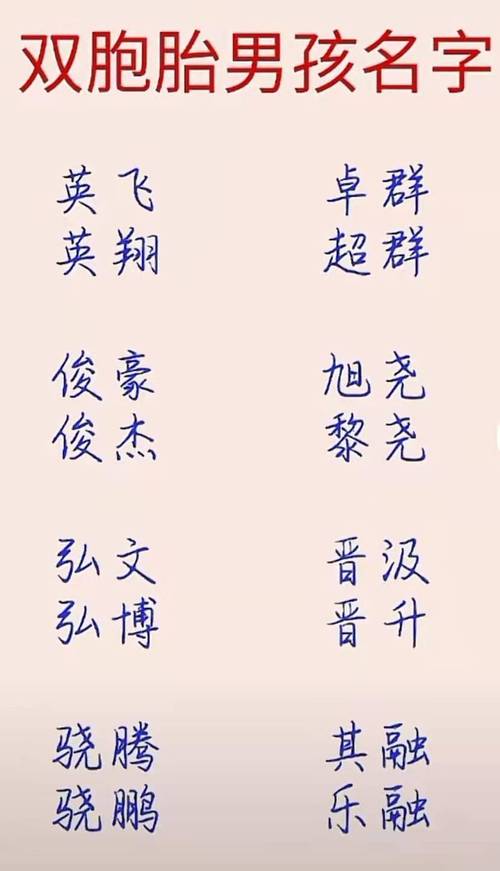 双胞胎男孩名字
英飞 卓群
英翔 超群
俊豪 旭尧
俊杰 黎尧
弘文 晋汲
弘博 晋升
骁腾 其融
骁鹏 乐融